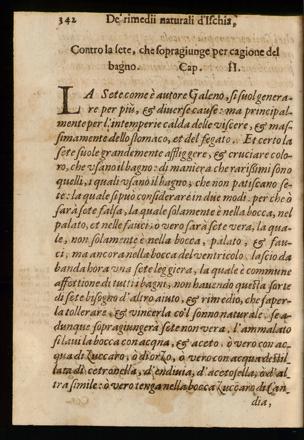 342 De' rimedii naturali d'Ischia,
Contro la sete, che sopragiunge per cagione del
bagno. Cap. II.
LA Sete come è autore Galeno, si suol genera-
re per più, & diverse cause: ma principal-
mente per l'intemperie calda delle viscere, & mas-
simamente dello stomaco, et del fegato. Et certo la
sete suole grandemente affliggere, & cruciare colo-
ro, che usano il bagno: di maniera che rarissimi sono
quelli, i quali usano il bagno, che non patiscano se-
te: la quale si può considerare in due modi. per che ò
sarà sete falsa, la quale solamente è nella bocca, nel
palato, et nelle fauci: ò vero sarà sete vera, la qua-
le, non solamente è nella bocca, palato, & fau-
ci, ma ancora nella bocca del ventricolo. lascio da
banda hora una sete leggiera, la quale è commune
affettione di tutti i bagni, non havendo questa sorte
di sete bisogno d'altro aiuto, & rimedio, che saper-
la tollerare, & vincerla co'l sonno naturale. se a-
dunque sopragiungerà sete non vera, l'ammalato
si lavi la bocca con acqua, & aceto, ò vero con ac-
qua di Zuccaro, ò d'orzo, ò vero con acqua distil-
lata di cetronella, d'endivia, d'acetosella, ò d'al
tra simile: ò vero tenga nella bocca Zuccaro di Can-
dia,